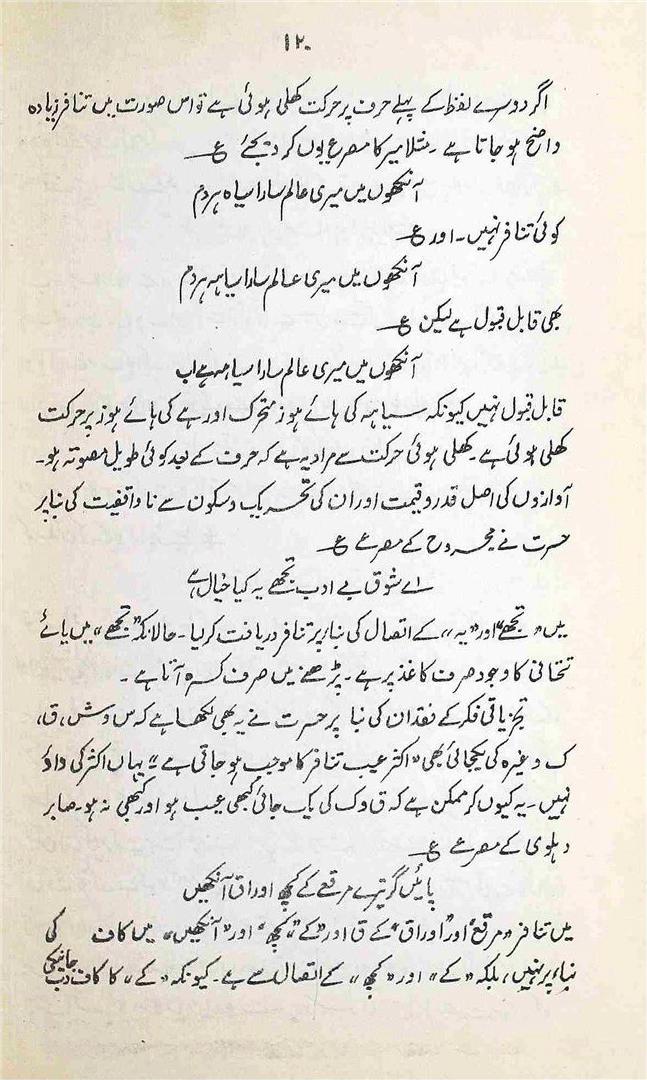 ۱۲۰
اگر دوسرے لفظ کے پہلے حرف پر حرکت کھلی ہوئی ہے تو اس صورت میں تنافر زیادہ
واضح ہو جاتا ہے۔ مثلاً میر کا مصرع یوں کر دیجئے ع
آنکھوں میں میری عالم سارا سیاہ ہر دم
کوئی تنافر نہیں۔ اور ع
آنکھوں میں میری عالم سارا سیاہہ ہر دم
بھی قابل قبول ہے لیکن ع
آنکھوں میں میری عالم سارا سیاہہ ہے اب
قابل قبول نہیں کیونکہ سیاہہ کی ہائے ہوز متحرک اور ہے کی ہائے ہوز پر حرکت
کھلی ہوئی ہے۔ کھلی ہوئی حرکت سے مراد یہ ہے کہ حرف کے بعد کوئی طویل مصوتہ ہو۔
آوازوں کی اصل قدر و قیمت اور ان کی تحریک و سکون سے ناواقفیت کی بنا پر
حسرت نے مجروح کے مصرعے ع
اے شوق بے ادب تجھے یہ کیا خیال ہے
میں "تجھے" اور "یہ" کے اتصال کی بناء پر تنافر دریافت کر لیا۔ حالانکہ "تجھے" میں یائے
تحتانی کا وجود صرف کاغذ پر ہے۔ پڑھنے میں صرف کسرہ آتا ہے۔
تجزیاتی فکر کے فقدان کی بنا پر حسرت نے یہ بھی لکھا ہے کہ س و ش، ق،
ک وغیرہ کی یکجائی بھی "اکثر عیب تنافر کا موجب ہو جاتی ہے" یہاں اکثر کی داد
نہیں۔ یہ کیوں کر ممکن ہے کہ ق و ک کی یک جائی کبھی عیب ہو اور کبھی نہ ہو۔ صابر
دہلوی کے مصرعے ع
پائیں گر تیرے مرقعے کے کچھ اوراق آنکھیں
میں تنافر "مرقع" اور "اوراق" کے ق اور "کے" "کچھ" اور "آنکھیں" میں کاف کی
بناء پر نہیں، بلکہ "کے" اور "کچھ" کے اتصال سے ہے۔ کیونکہ "کے" کا کاف دب جانیکی